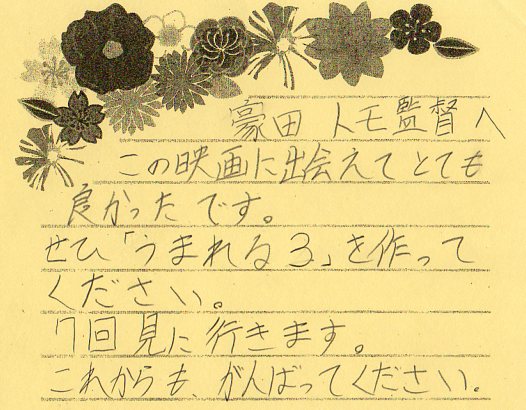 豪田トモ監督へ
この映画に出会えてとても
良かったです。
ぜひ「うまれる3」を作って
ください。
7回見に行きます。
これからも、がんばってください。